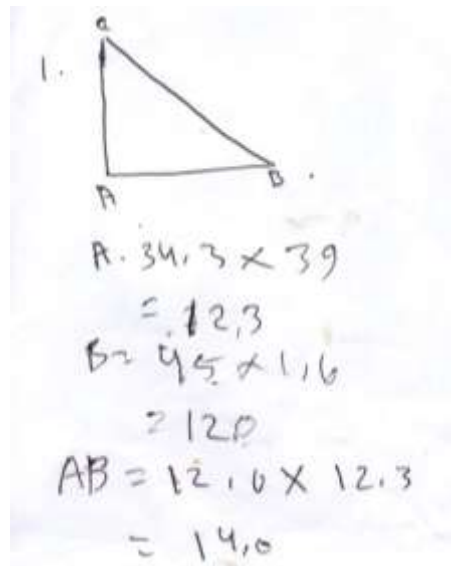 C
1.
A B.
A. 34,3 × 39
= 12,3
B = 45 × 1,6
= 120
AB = 12,0 × 12.3
= 14,0